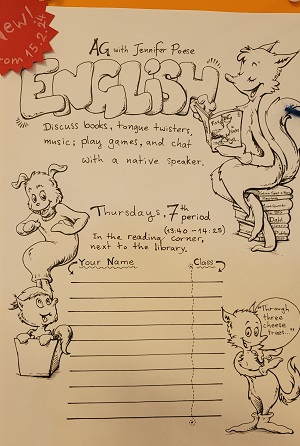 New!
from 15.2.24
AG with Jennifer Poese
ENGLISH
Discuss books, tongue twisters,
music; play games, and chat
with a native speaker.
Thursdays, 7th
period
(13:40 - 14:25)
In the reading corner,
next to the library.
Your Name
Class
"Through
three
cheese
trees..."